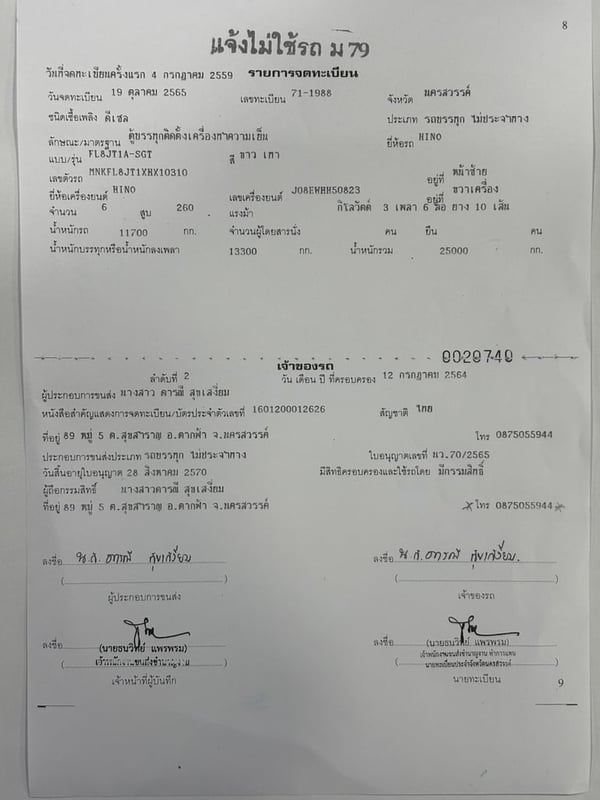 8
แจ้งไม่ใช้รถ ม 79
วันที่จดทะเบียนครั้งแรก 4 กรกฎาคม 2559 รายการจดทะเบียน
วันจดทะเบียน 19 ตุลาคม 2565 เลขทะเบียน 71-1988 จังหวัด นครสวรรค์
ชนิดเชื้อเพลิง ดีเซล ประเภท รถบรรทุก ไม่ประจำทาง
ลักษณะ/มาตรฐาน ตู้บรรทุกติดตั้งเครื่องทำความเย็น ยี่ห้อรถ HINO
แบบ/รุ่น FL8JT1A-SGT สี ขาว เทา
เลขตัวรถ MNKFL8JT1XHX10310 อยู่ที่ หน้าซ้าย
ยี่ห้อเครื่องยนต์ HINO เลขเครื่องยนต์ J08EWHH50823 อยู่ที่ ขวาเครื่อง
จำนวน 6 สูบ 260 แรงม้า กิโลวัตต์ 3 เพลา 6 ล้อ ยาง 10 เส้น
น้ำหนักรถ 11700 กก. จำนวนผู้โดยสารนั่ง คน ยืน คน
น้ำหนักบรรทุกหรือน้ำหนักลงเพลา 13300 กก. น้ำหนักรวม 25000 กก.
0029740
เจ้าของรถ
ลำดับที่ 2 วัน เดือน ปี ที่ครอบครอง 12 กรกฎาคม 2564
ผู้ประกอบการขนส่ง นางสาว ดารณี สุขเสงี่ยม
หนังสือสำคัญแสดงการจดทะเบียน/บัตรประจำตัวเลขที่ 1601200012626 สัญชาติ ไทย
ที่อยู่ 89 หมู่ 5 ต.สุขสำราญ อ.ตากฟ้า จ.นครสวรรค์ โทร 0875055944
ประกอบการขนส่งประเภท รถบรรทุก ไม่ประจำทาง ใบอนุญาตเลขที่ นว.70/2565
วันสิ้นอายุใบอนุญาต 28 สิงหาคม 2570 มีสิทธิครอบครองและใช้รถโดย มีกรรมสิทธิ์
ผู้ถือกรรมสิทธิ์ นางสาวดารณี สุขเสงี่ยม
ที่อยู่ 89 หมู่ 5 ต.สุขสำราญ อ.ตากฟ้า จ.นครสวรรค์ โทร 0875055944
ลงชื่อ ลงชื่อ
ผู้ประกอบการขนส่ง เจ้าของรถ
ลงชื่อ (นายธนวิทย์ แพรพรม) ลงชื่อ (นายธนวิทย์ แพรพรม)
เจ้าพนักงานขนส่งชำนาญงาน เจ้าพนักงานขนส่งชำนาญงาน ทำการแทน
นายทะเบียนประจำจังหวัดนครสวรรค์
เจ้าหน้าที่ผู้บันทึก นายทะเบียน
9